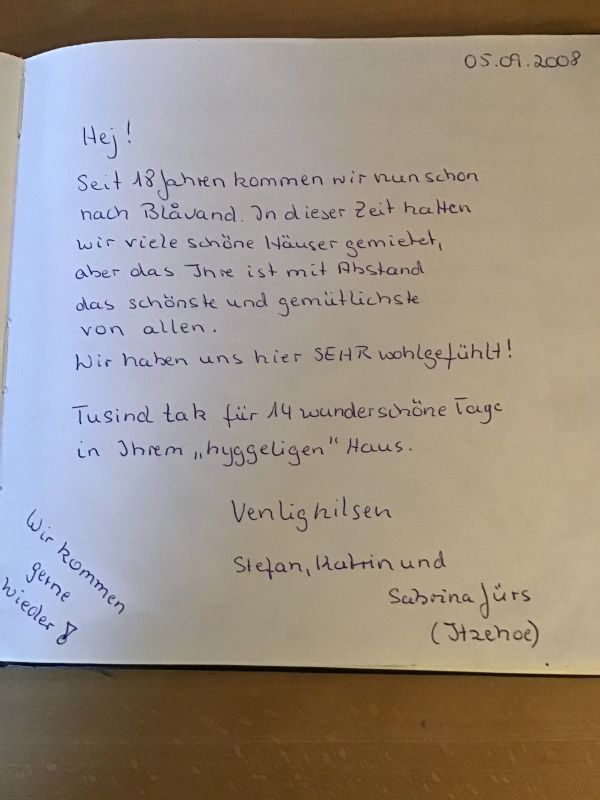 05.09.2008
Hej!
Seit 18 Jahren kommen wir nun schon
nach Blåvand. In dieser Zeit hatten
wir viele schöne Häuser gemietet,
aber das Ihre ist mit Abstand
das schönste und gemütlichste
von allen.
Wir haben uns hier SEHR wohlgefühlt!
Tusind tak für 14 wunderschöne Tage
in Ihrem „hyggeligen" Haus.
Venlig hilsen
Stefan, Katrin und
Sabrina Jürs
(Itzehoe)
Wir kommen
gerne
wieder!